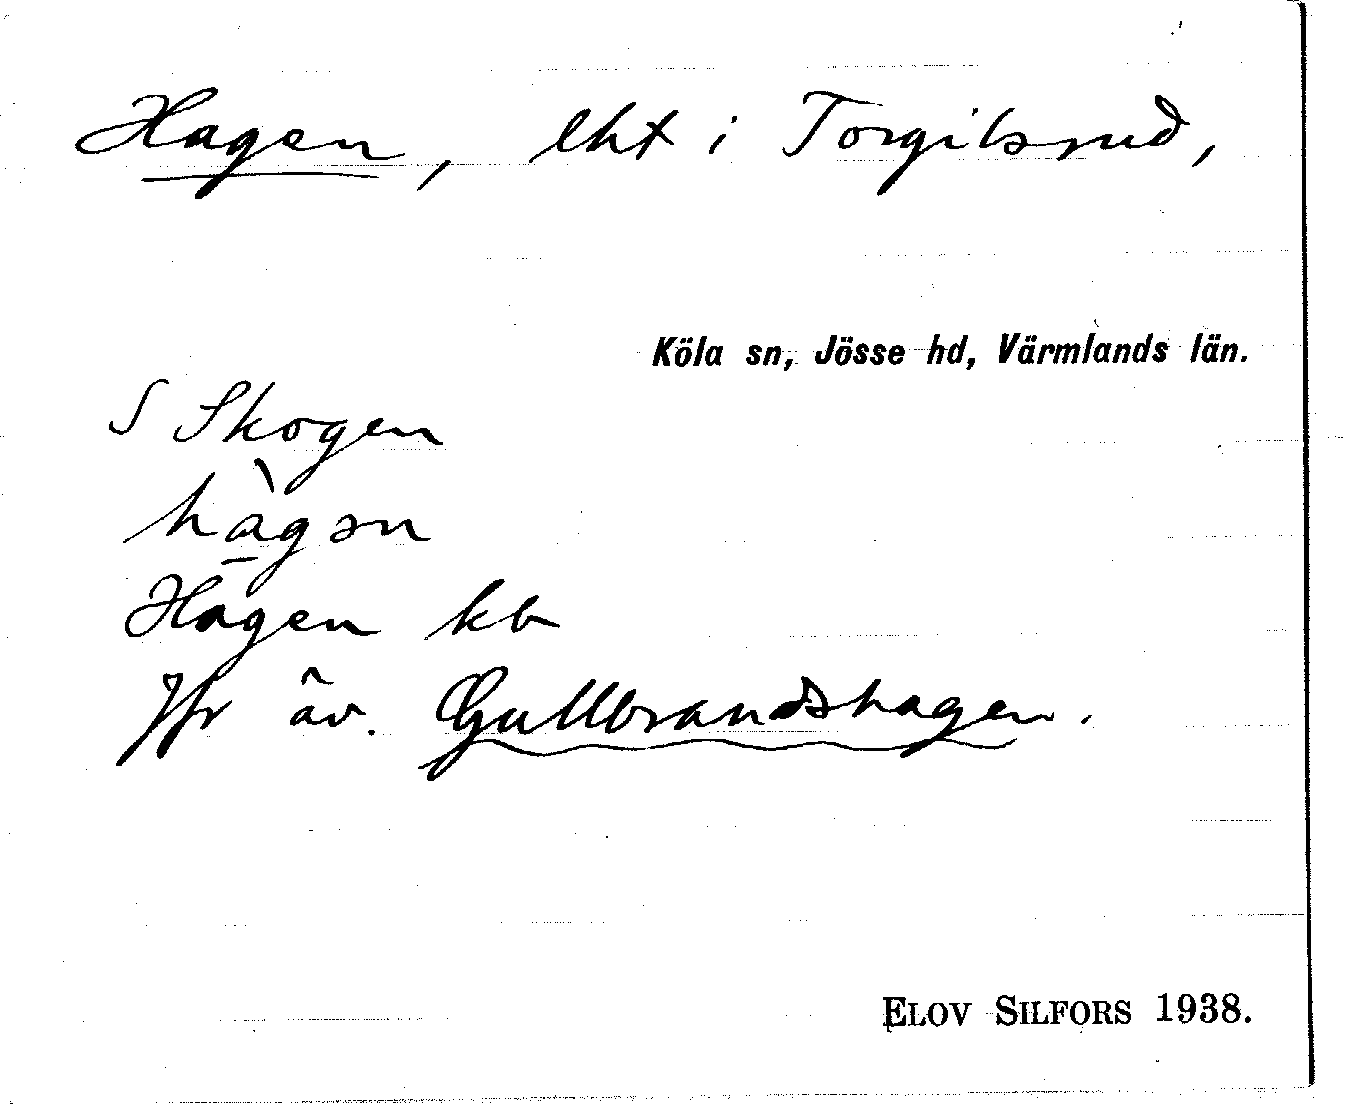 Hagen, lht i Torgilsrud,
Köla sn, Jösse hd, Värmlands län.
S Skogen
hàgən
Hagen kb
Jfr äv. Gullbrandshagen.
ELOV SILFORS 1938.